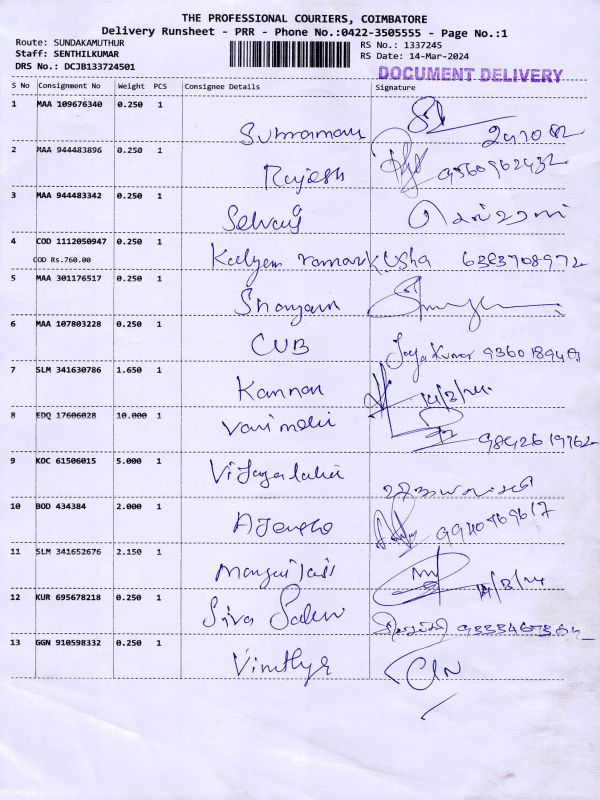 THE PROFESSIONAL COURIERS, COIMBATORE
Delivery Runsheet - PRR - Phone No.:0422-3505555 - Page No.:1
Route: SUNDAKAMUTHUR RS No.: 1337245
Staff: SENTHILKUMAR RS Date: 14-Mar-2024
DRS No.: DCJB133724501 DOCUMENT DELIVERY
S No Consignment No Weight PCS Consignee Details Signature
1 MAA 109676340 0.250 1
Subramani
2 MAA 944483896 0.250 1
Rajesh 9560962432
3 MAA 944483342 0.250 1
Selvaij
4 COD 1112050947 0.250 1
COD Rs.760.00 Kalyan raman Usha 6383708972
5 MAA 301176517 0.250 1
6 MAA 107803228 0.250 1
CUB Jaya Kumar
7 SLM 341630786 1.650 1
Kannan 14/3/24
8 EDQ 17606028 10.000 1
9842619762
9 KOC 61506015 5.000 1
10 BOD 434384 2.000 1
11 SLM 341652676 2.150 1
14/3/24
12 KUR 695678218 0.250 1
Siva
13 GGN 910598332 0.250 1
Vinithya